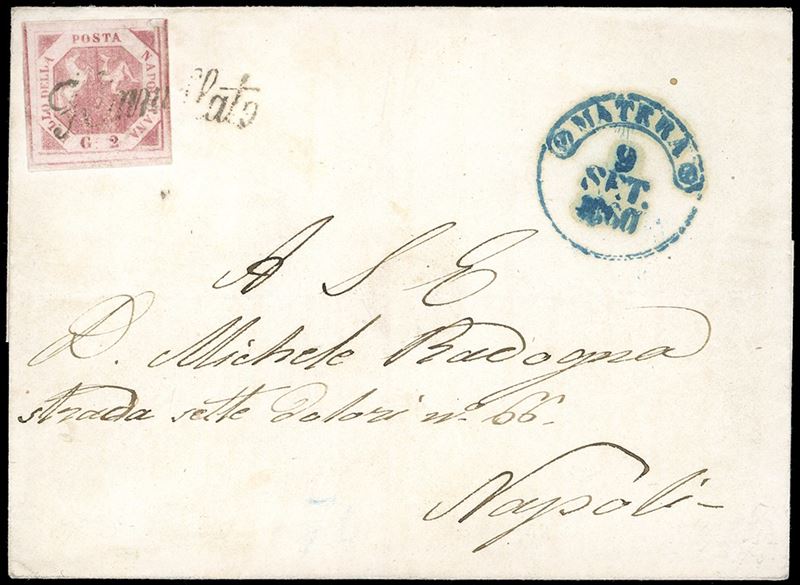 POSTA
NAPOLETANA
BOLLO DELLA
G. 2
Annullato
MATERA
9
SET.
1860
A S E
D. Michele Radogna
strada sette dolori nº 66.
Napoli